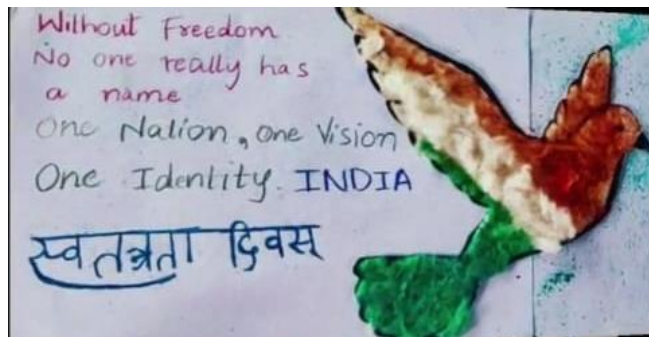 Without Freedom
No one really has
a name
One Nation, One Vision
One Identity. INDIA
स्वतन्त्रता दिवस